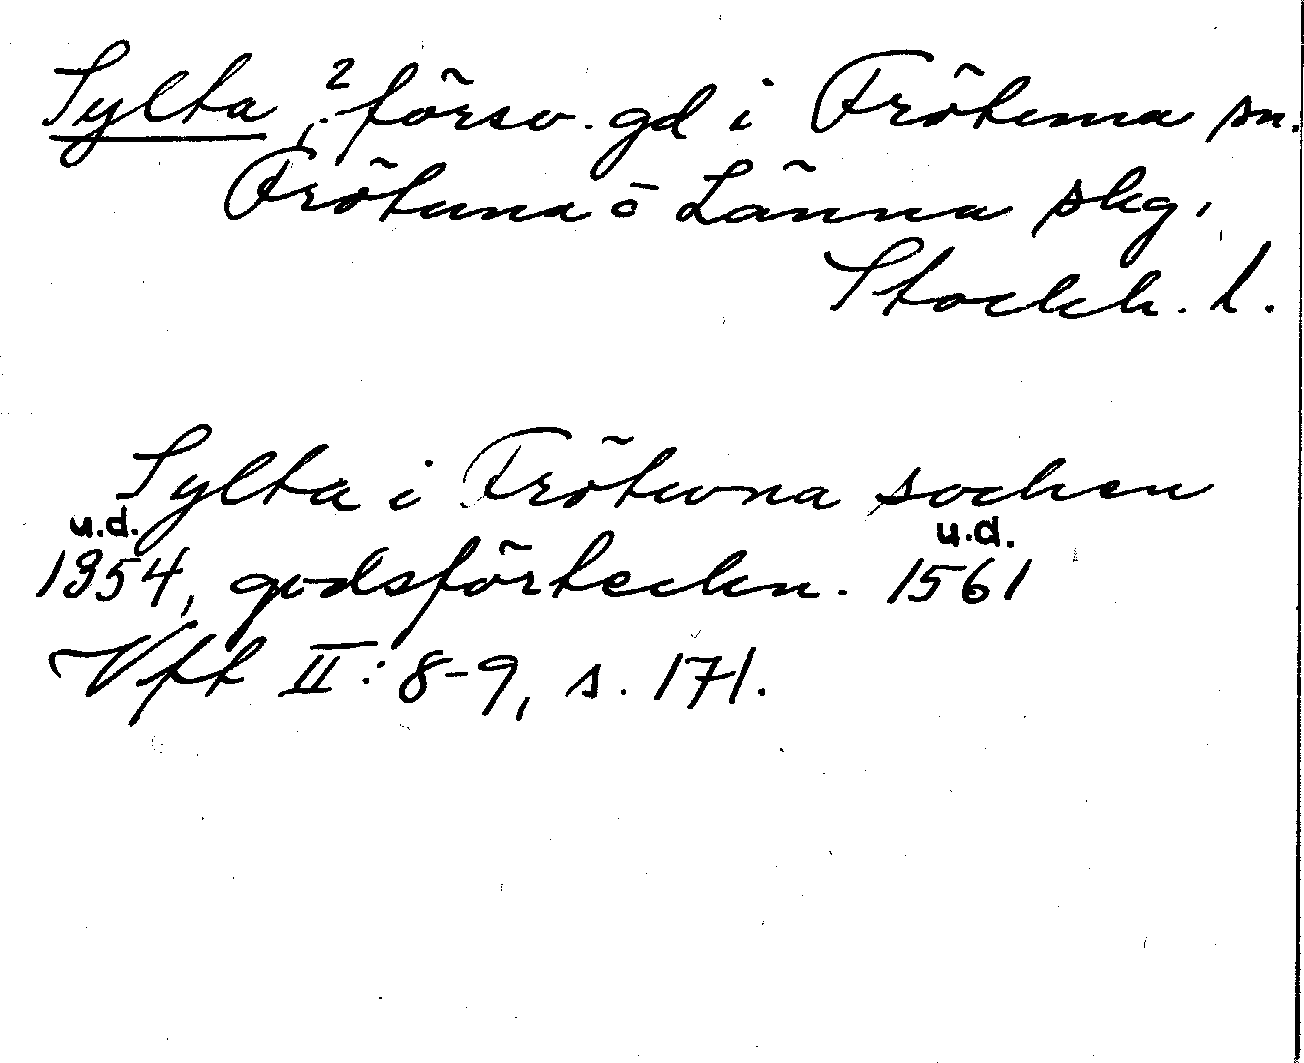 Sylta, ? försv. gd i Frötuna sn.
Frötuna o Länna skg.
Stockh. l.
Sylta i Frötuna socken
u.d. u.d.
1354, godsförteckn. 1561
Vft II: 8-9, s. 171.